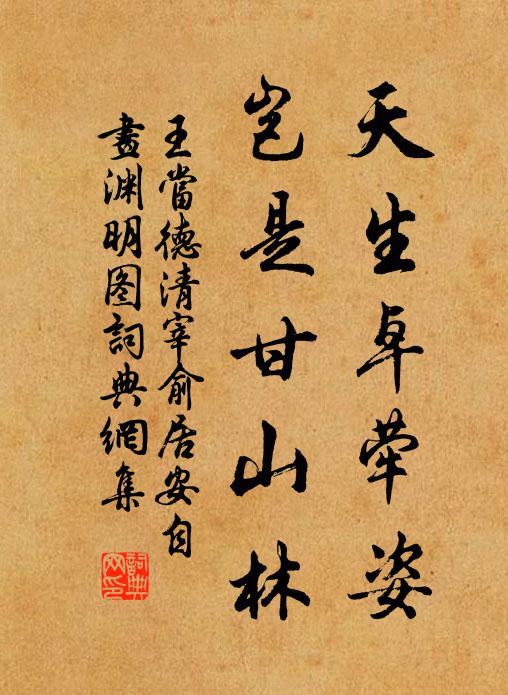 天生卓犖姿
豈是甘山林
王當德清宰俞居安自
畫渊明图詞典網集
詞典网印